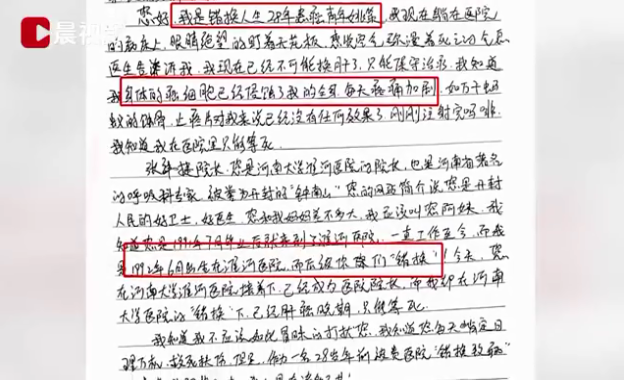 晨视频
您好，我是错换人生28年患癌青年姚策，我现在躺在医院
的病床上，眼睛绝望的盯着天花板，感觉空气弥漫着死亡的气息
医生告诉我，我现在已经不可能换肝了，只能保守治疗，我知道
我身体的癌细胞已经侵蚀了我的全身，每天疼痛加剧，如万千虫
蚁的侵食，止疼片对我来说已经没有任何效果了，刚刚注射完吗啡，
我知道我在医院里只能等死
张 院长，您是河南大学淮河医院的院长，也是河南省著名
的呼吸科专家，被誉为开封的“钟南山”您的网站简介说您是开封
人民的好卫士，好医生，您和我妈妈差不多大，我应该叫您阿姨，我
知道您是1991年7月毕业后就来到了淮河医院，一直工作至今，而我
是1992年6月出生在淮河医院，而后被你们“错换”！今天，您
在河南大学淮河医院 下，已经成为医院院长，而我却在河南
大学医院的“错换”下，已经肝癌晚期，只能等死
我知道我不应该如此冒昧的打扰您，我知道您每天肯定日
理万机，救死扶伤，但是，作为一名28岁年前被贵医院“错换